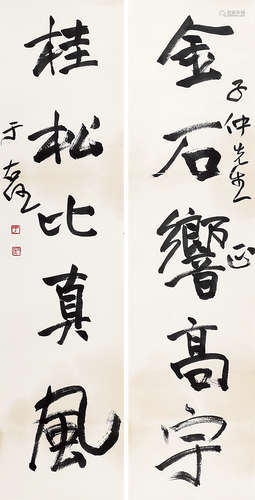 金石響高宇
子仲先生正
桂松比真風
于右任